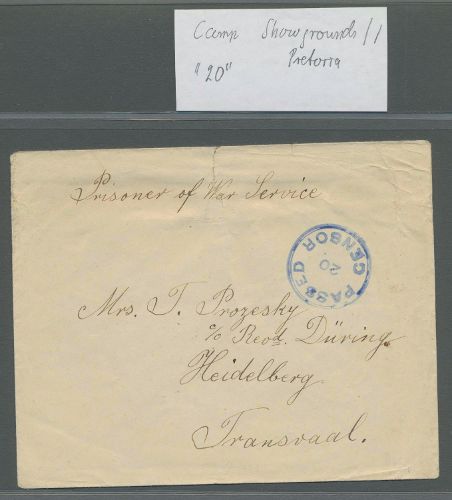 Camp Showgrounds //
"20" Pretoria
Prisoner of War Service
PASSED CENSOR
20
Mrs. T. Prozesky
c/o Revd. Düring.
Heidelberg.
Transvaal.